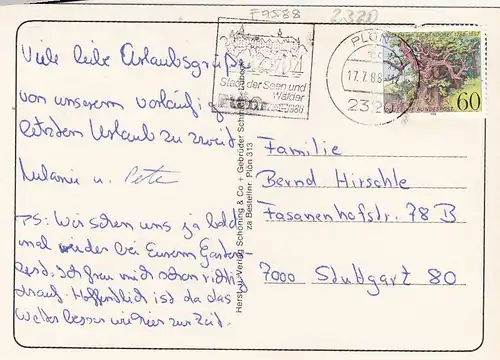 F7588
2320
Viele liebe Urlaubsgrüße
von unserem vorläufig
letzten Urlaub zu zweit
Melanie u. Pete
PS: Wir sehen uns ja bald
mal wieder bei Eurem Garten-
fest. Ich freu mich schon richtig
drauf. Hoffentlich ist da das
Wetter besser wie hier zur Zeit.
Herst. u. Verlag Schöning & Co + Gebrüder Schmidt, Lübeck
Bestellnr. Plön 313
Stadt der Seen und
Wälder
PLÖN
17.7.88
2320
DEUTSCHE BUNDESPOST
60
Familie
Bernd Hirschle
Fasanenhofstr. 78 B
7000 Stuttgart 80